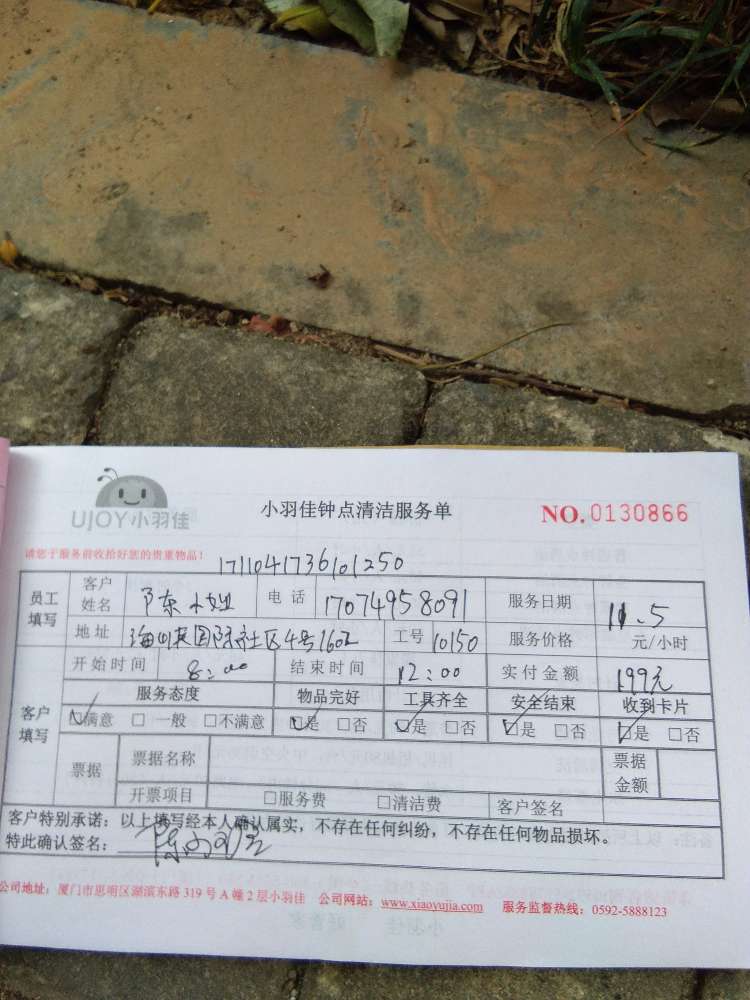 UJOY小羽佳
小羽佳钟点清洁服务单
NO.0130866
请您于服务前收拾好您的贵重物品！
1711041736101250
员工填写 客户姓名 陈小姐 电话 17074958091 服务日期 11.5
地址 国际社区4号1602 工号 10150 服务价格 元/小时
开始时间 8:00 结束时间 12:00 实付金额 199元
客户填写 服务态度 物品完好 工具齐全 安全结束 收到卡片
☑满意 □一般 □不满意 ☑是 □否 ☑是 □否 ☑是 □否 ☑是 □否
票据 票据名称 票据金额
开票项目 □服务费 □清洁费 客户签名
客户特别承诺：以上填写经本人确认属实，不存在任何纠纷，不存在任何物品损坏。
特此确认签名：
公司地址：厦门市思明区湖滨东路319号A幢2层小羽佳 公司网站：www.xiaoyujia.com 服务监督热线：0592-5888123